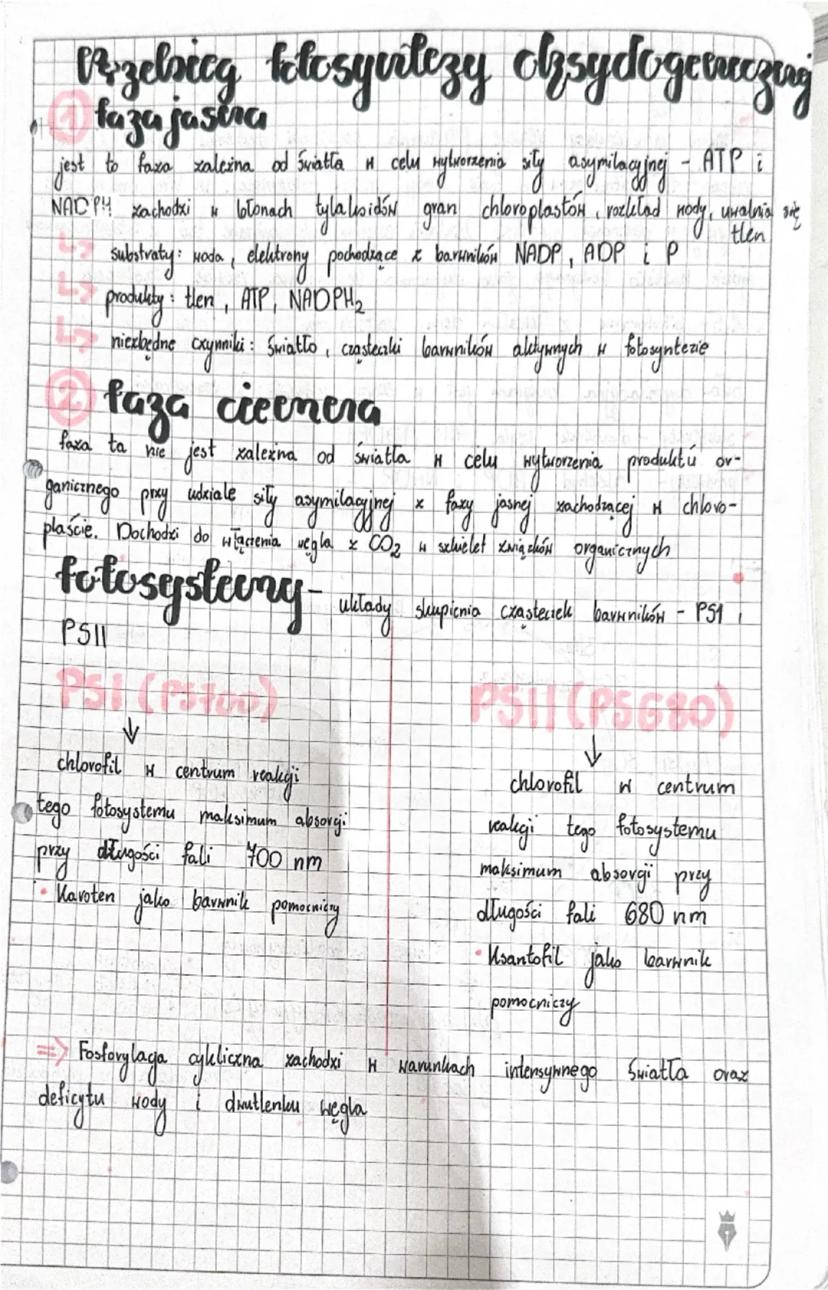 Przebieg fotosyntezy oksydogenicznej
1 faza jasna
jest to faza zależna od światła w celu wytworzenia siły asymilacyjnej - ATP i
NADPH zachodzi w błonach tylakoidów gran chloroplastów, rozkład wody, uwalnia się
tlen
↳ substraty: woda, elektrony pochodzące z barwników NADP, ADP i P
↳ produkty: tlen, ATP, NADPH₂
↳ niezbędne czynniki: światło, cząsteczki barwników aktywnych w fotosyntezie
2 faza ciemna
faza ta nie jest zależna od światła w celu wytworzenia produktu or-
ganicznego przy udziale siły asymilacyjnej z fazy jasnej zachodzącej w chloro-
plaście. Dochodzi do włączenia węgla z CO₂ w szkielet związków organicznych
fotosystemy - układy skupienia cząsteczek barwników - PS1 i
PSII
PSI (PS700)
↓
chlorofil w centrum reakcji
tego fotosystemu maksimum absorpcji
przy długości fali 700 nm
• Karoten jako barwnik pomocniczy
PSII (PS680)
↓
chlorofil w centrum
reakcji tego fotosystemu
maksimum absorpcji przy
długości fali 680 nm
• Ksantofil jako barwnik
pomocniczy
⇒ Fosforylacja cykliczna zachodzi w warunkach intensywnego światła oraz
deficytu wody i dwutlenku węgla